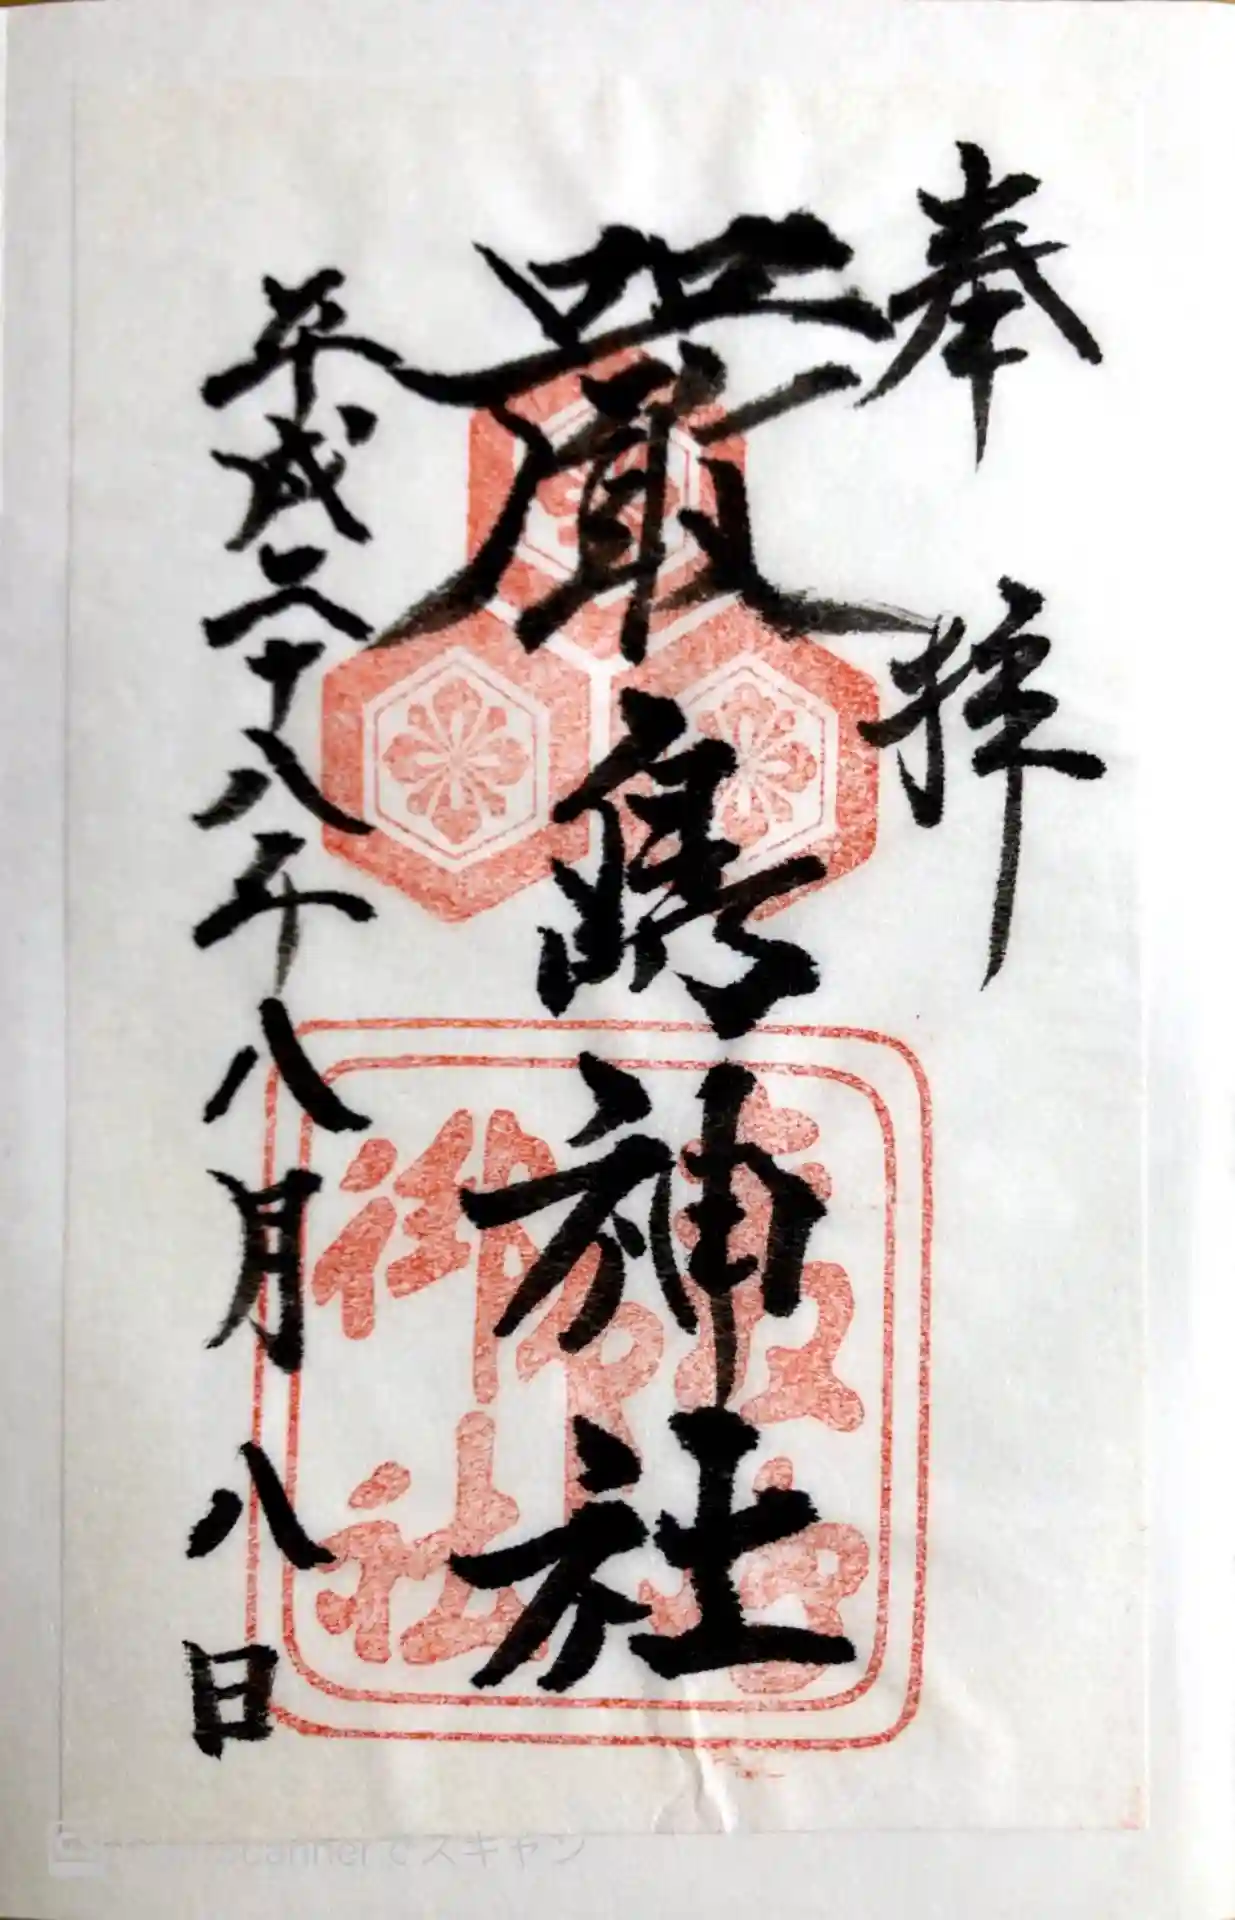 奉拝
嚴島神社
平成二十八年八月八日
御社
Scannerでスキャン